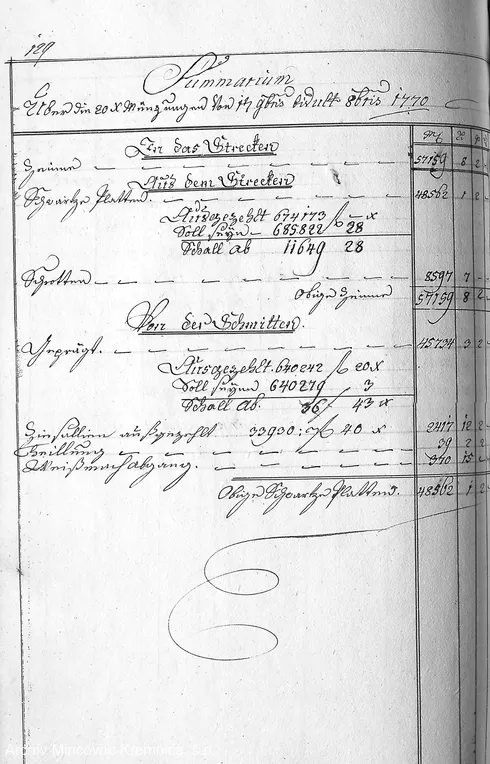 129
Summarium
Über die 20 X Münzungen von 1t 9bris bis ult 8bris 1770
M X
In das Strecken
Zaine 57159 8 2
Aus dem Strecken
Schwartze Platten 48562 1 2
Ausgezehlt 674173 f – x
Soll seyn 685822 28
Schall ab 11649 28
Schrotten 8597 7
Obige Zaine 57159 8 2
Von der Schmitten.
Geprägt. 45734 3 2
Ausgezehlt. 640242 f 20 x
Soll seyn 640279 3
Schall ab. 36 f 43 x
Ziesallien außgezehlt 33930 f 40 x 2417 12 2
Theillung 39 2 2
Weißmach abgang. 370 15
Obige Schwartze Platten. 48562 1 2
Archív Mincovne Kremnica, š.p.